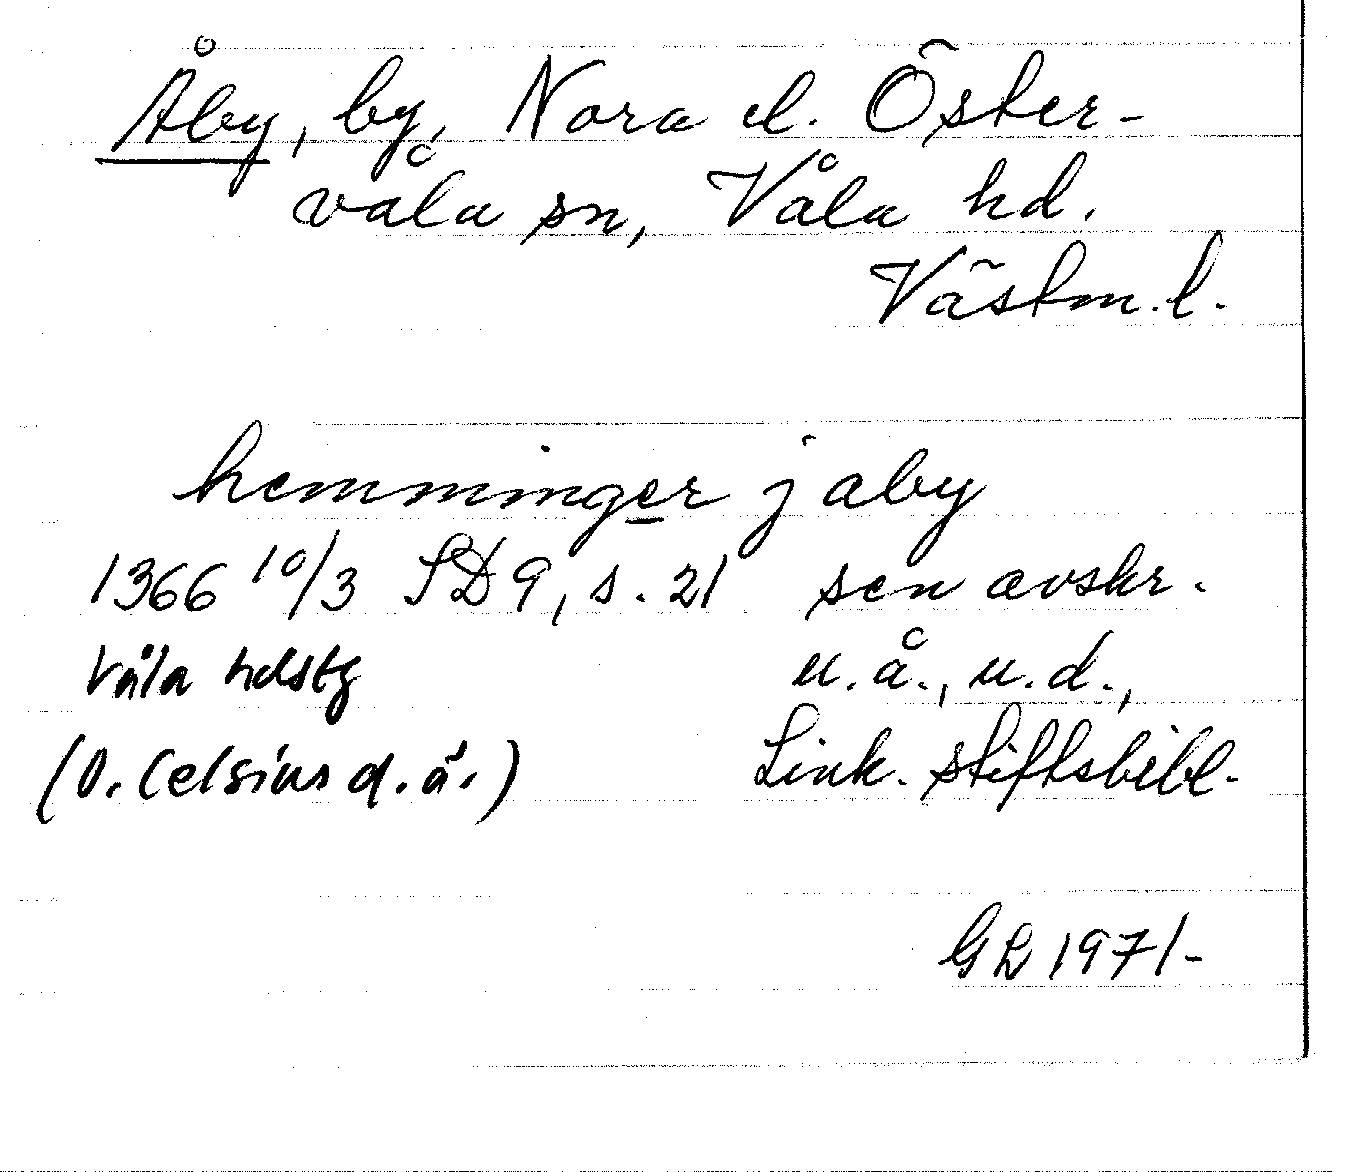 Åby, by, Nora el. Öster-
våla sn, Våla hd.
Västm.l.
hemminger j aby
1366 10/3 SD 9, s. 21 sen avskr.
Våla hdstg u.å., u.d.,
(O. Celsius d.ä.) Link. stiftsbibl.
GL 1971-